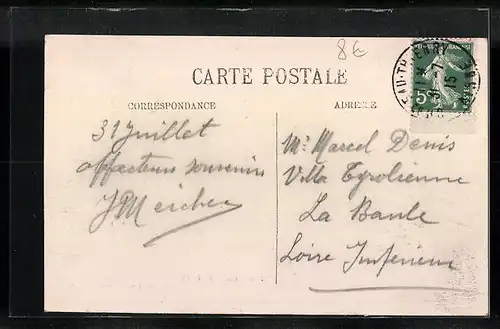 8€
CARTE POSTALE
CORRESPONDANCE
ADRESSE
31 Juillet
affectueux souvenirs
Mr Marcel Denis
Villa Tyrolienne
La Baule
Loire Inférieure
31-7
15
5c